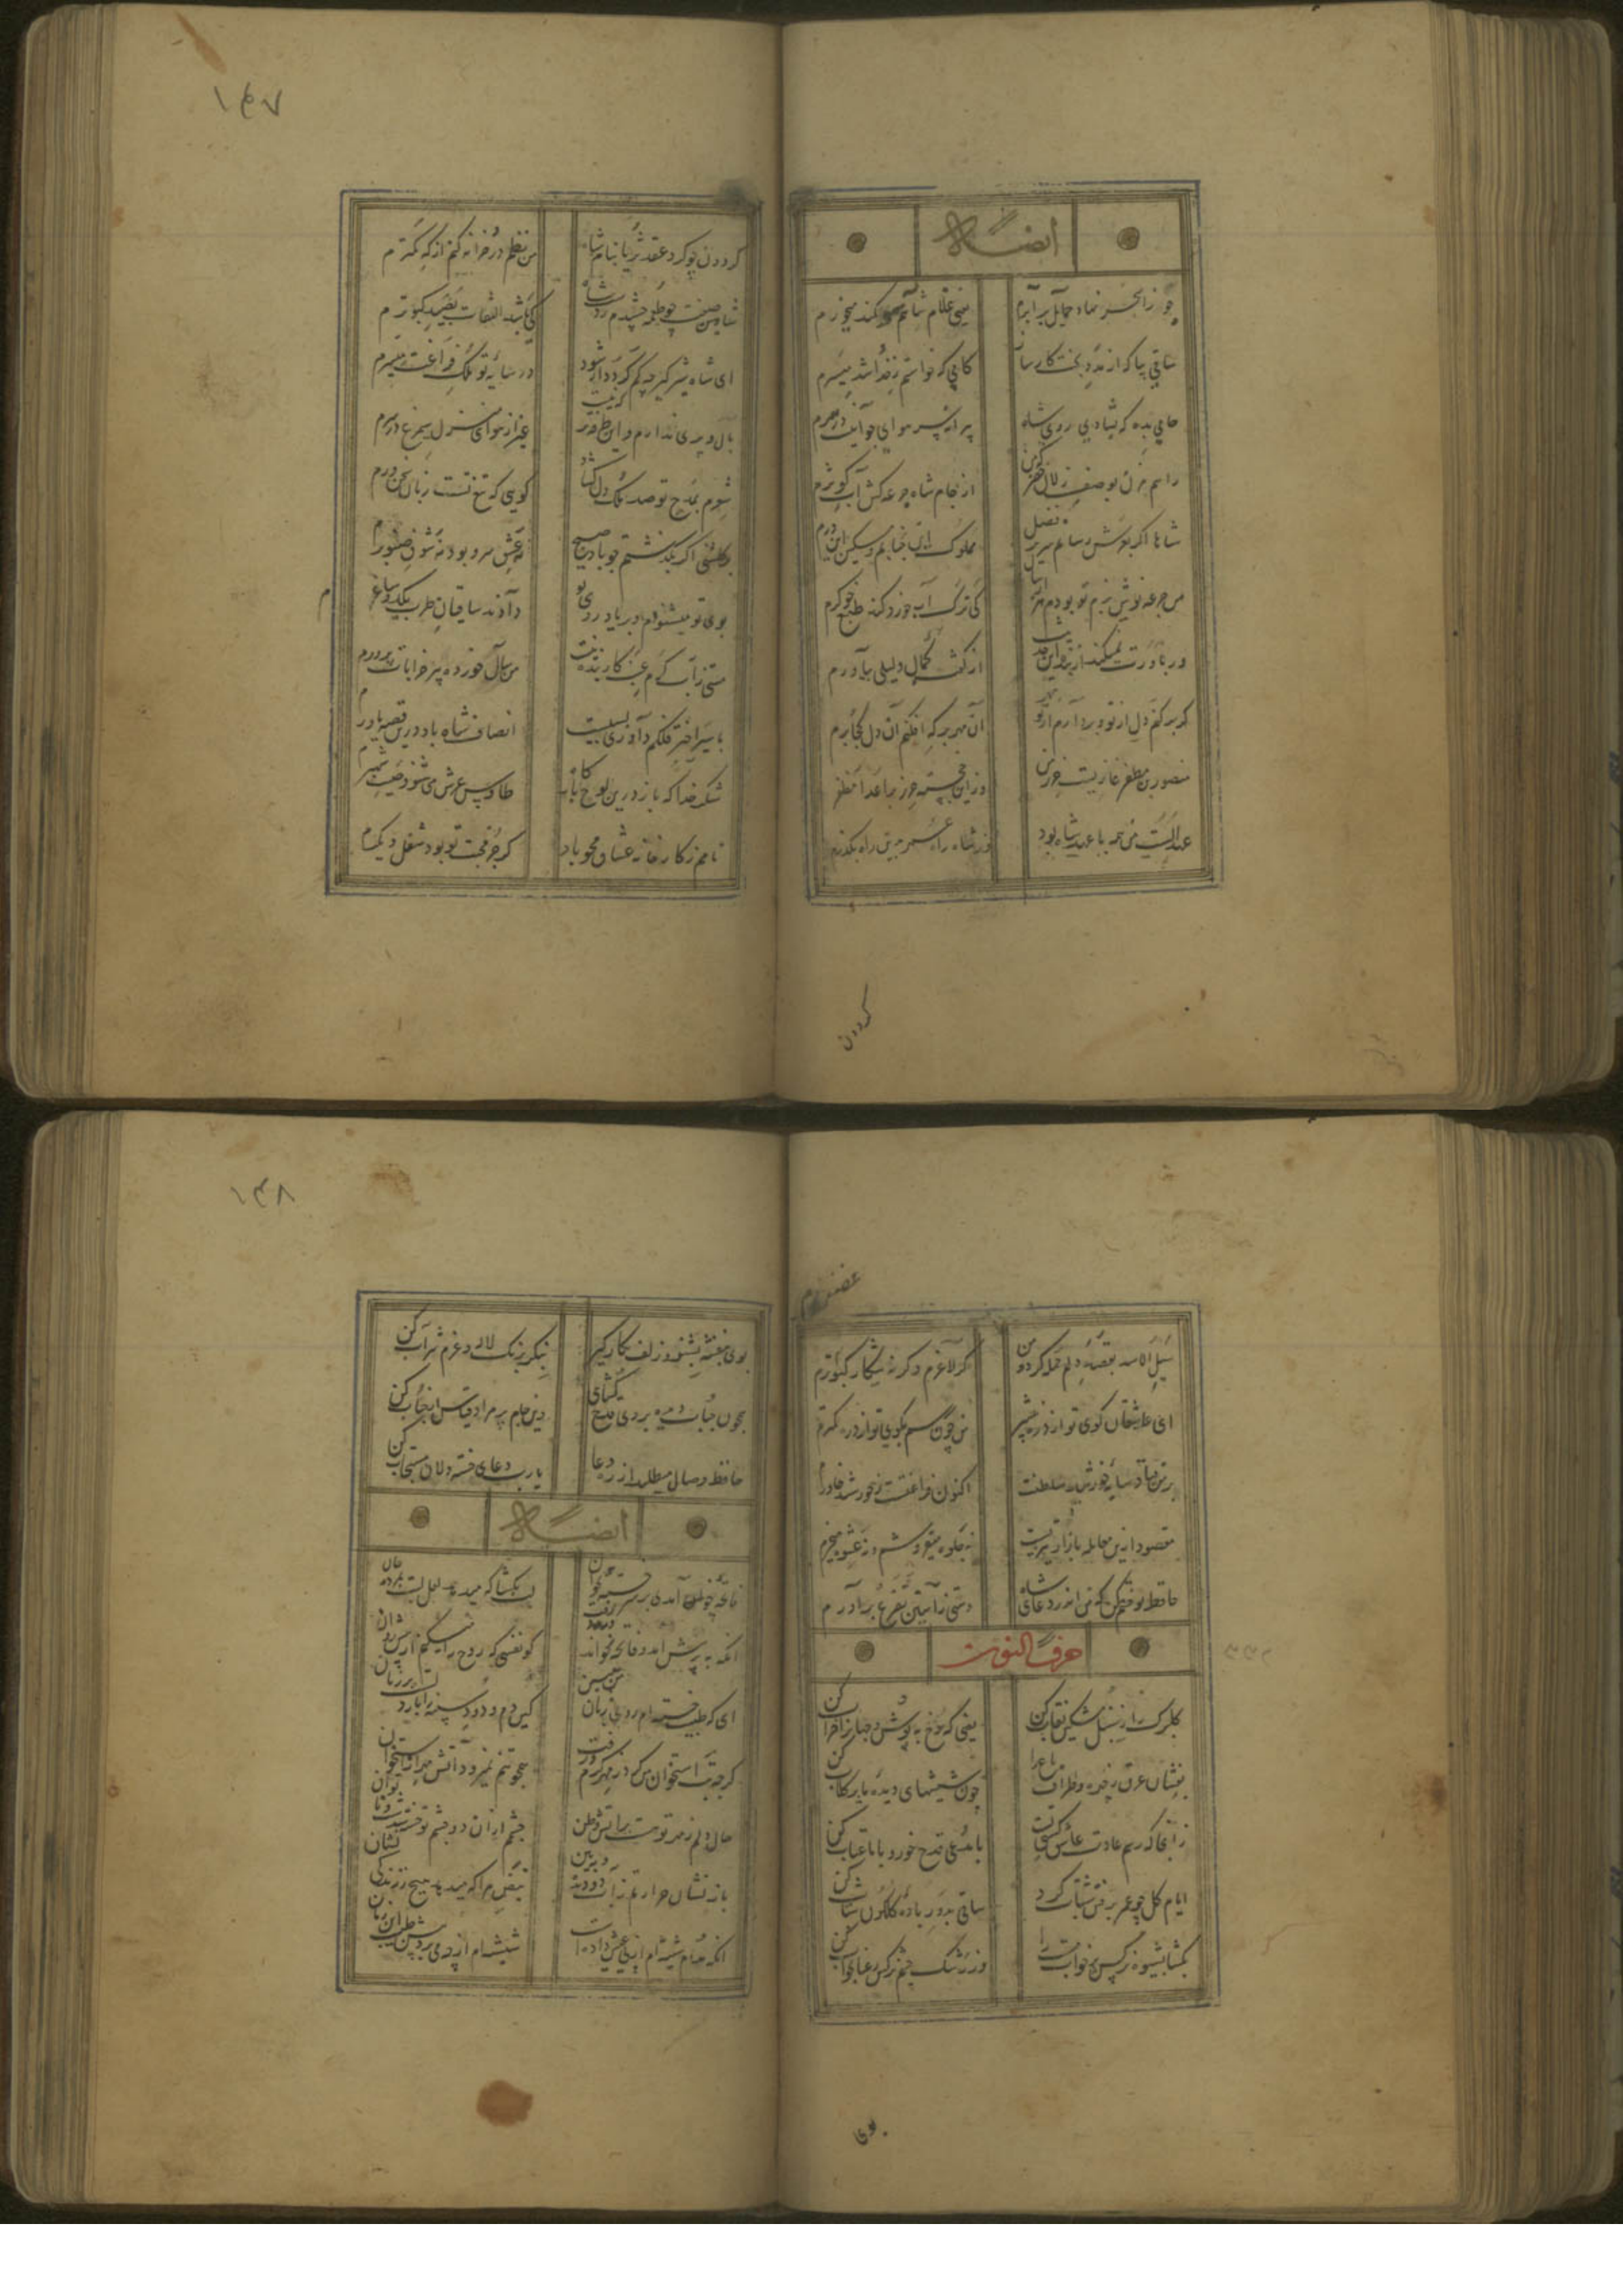 ایضاً له
جوزا سحر نهاد حمایل برابرم یعنی غلام شاهم و سوکند میخورم
ساقی بیا که از مدد بخت کارساز کامی که خواستم ز خدا شد میسرم
جامی بده که بشادی روی شاه پیرانه سر هوای جوانیست در سرم
راهم مزن بوصف زلال خضر که من از جام شاه جرعه کش آب کوثرم
شاها اکر بعرش رسانم سریر فضل مملوک این جنابم و مسکین این درم
من جرعه نوش بزم تو بودم هزار سال کی ترک آبخورد کند طبع خوکرم
ور باورت نمیکند از بنده این حدیث از کفته کمال دلیلی بیاورم
کر برکنم دل از تو و بردارم از تو مهر آن مهر بر که افکنم آن دل کجا برم
منصور بن مظفر غازیست حرز من وز این خجسته حرز بر اعدا مظفرم
عهد الست من همه با عهد شاه بود وز شاه راه عمر بدین راه بکذرم
کردون
۱۴۷
کردون چو کرد عقد ثریا بنام شاه من نظم در چرا نکنم از که کمترم
شاهین صفت چو طعمه چشیدم ز دست شاه کی باشد التفات بصید کبوترم
ای شاه شیرکیر چه کم کردد ار شود در سایه تو ملک فراغت میسرم
بال و پری ندارم و این طرفه تر که نیست غیر از هوای منزل سیمرغ در سرم
شعرم بمدح تو صد ملک دل کشاد کویی که تیغ تست زبان سخن ورم
بر کلشنی اکر بکذشتم چو باد صبح نه عشق سرو بود و نه شوق صنوبرم
بوی تو میشنیدم و بر یاد روی تو دادند ساقیان طرب یکدو ساغرم
مستی ز آب کرم عنب کار بنده نیست من سال خورده پیر خرابات پرورم
با سیر اختر فلکم داوری بسیست انصاف شاه باد درین قصه یاورم
شکر خدا که باز درین اوج بارکاه طاوس عرش می شنود صیت شهپرم
نامم ز کارخانه عشاق محو باد کر جز محبت تو بود شغل دیکرم
شبل الاسد بقصد دلم حمله کرد و من کر لاغرم و کرنه شکار کبوترم
ای عاشقان کوی تو از ذره بیشتر من چون رسم بکوی تو از ذره کمترم
بر من فتاد سایه خورشید سلطنت اکنون فراغتست ز خورشید خاورم
مقصود ازین معامله بازار تیزیست نه جلوه میفروشم و نه عشوه میخرم
حافظ توقفی کن که من اندر دعای شاه دستی ز آستین تضرع برآورم
حرف النون
کلبرک را ز سنبل مشکین نقاب کن یعنی که رخ بپوش و جهانرا خراب کن
بفشان عرق ز چهره و اطراف باغ را چون شیشهای دیده ما پر کلاب کن
زانجا که رسم عادت عاشق کشی تست با مدعی قدح خور و با ما عتاب کن
ایام کل چو عمر برفتن شتاب کرد ساقی بدور باده کلکون شتاب کن
بکشا بشیوه نرکس پر خواب مست را وز رشک چشم نرکس رعنا بخواب کن
بوی
۱۴۸
بوی بنفشه بشنو و زلف نکار کیر بنکر برنک لاله و عزم شراب کن
چون حباب دیده بروی قدح کشای وین جام پر مراد قیاس از حباب کن
حافظ وصال میطلبد از ره دعا یارب دعای خسته دلان مستجاب کن
ایضاً له
فاتحه چو آمدی بر سر خسته بخوان لب بکشا که میدهد لعل لبت بمرده جان
آنکه به پرسش آمد و فاتحه خواند کو نفسی که روح را میکنم از پیش روان
ای که طبیب خسته ام روی زبان من ببین کین دم و دود سینه ام بار دلست بر زبان
کرچه تب استخوان من کرد ز مهر کرم و رفت همچو تنم نمیرود آتش مهر از استخوان
حال دلم ز مهر تو هست بر آتش وطن چشم از ان دو چشم تو خسته شدست و ناتوان
باز نشان حرارتم ز آب دو دیده و ببین نبض مرا که میدهد هیچ ز زندکی نشان
آنکه مدام شیشه ام از پی عیش داده است شیشه ام از چه می برد پیش طبیب هر زمان